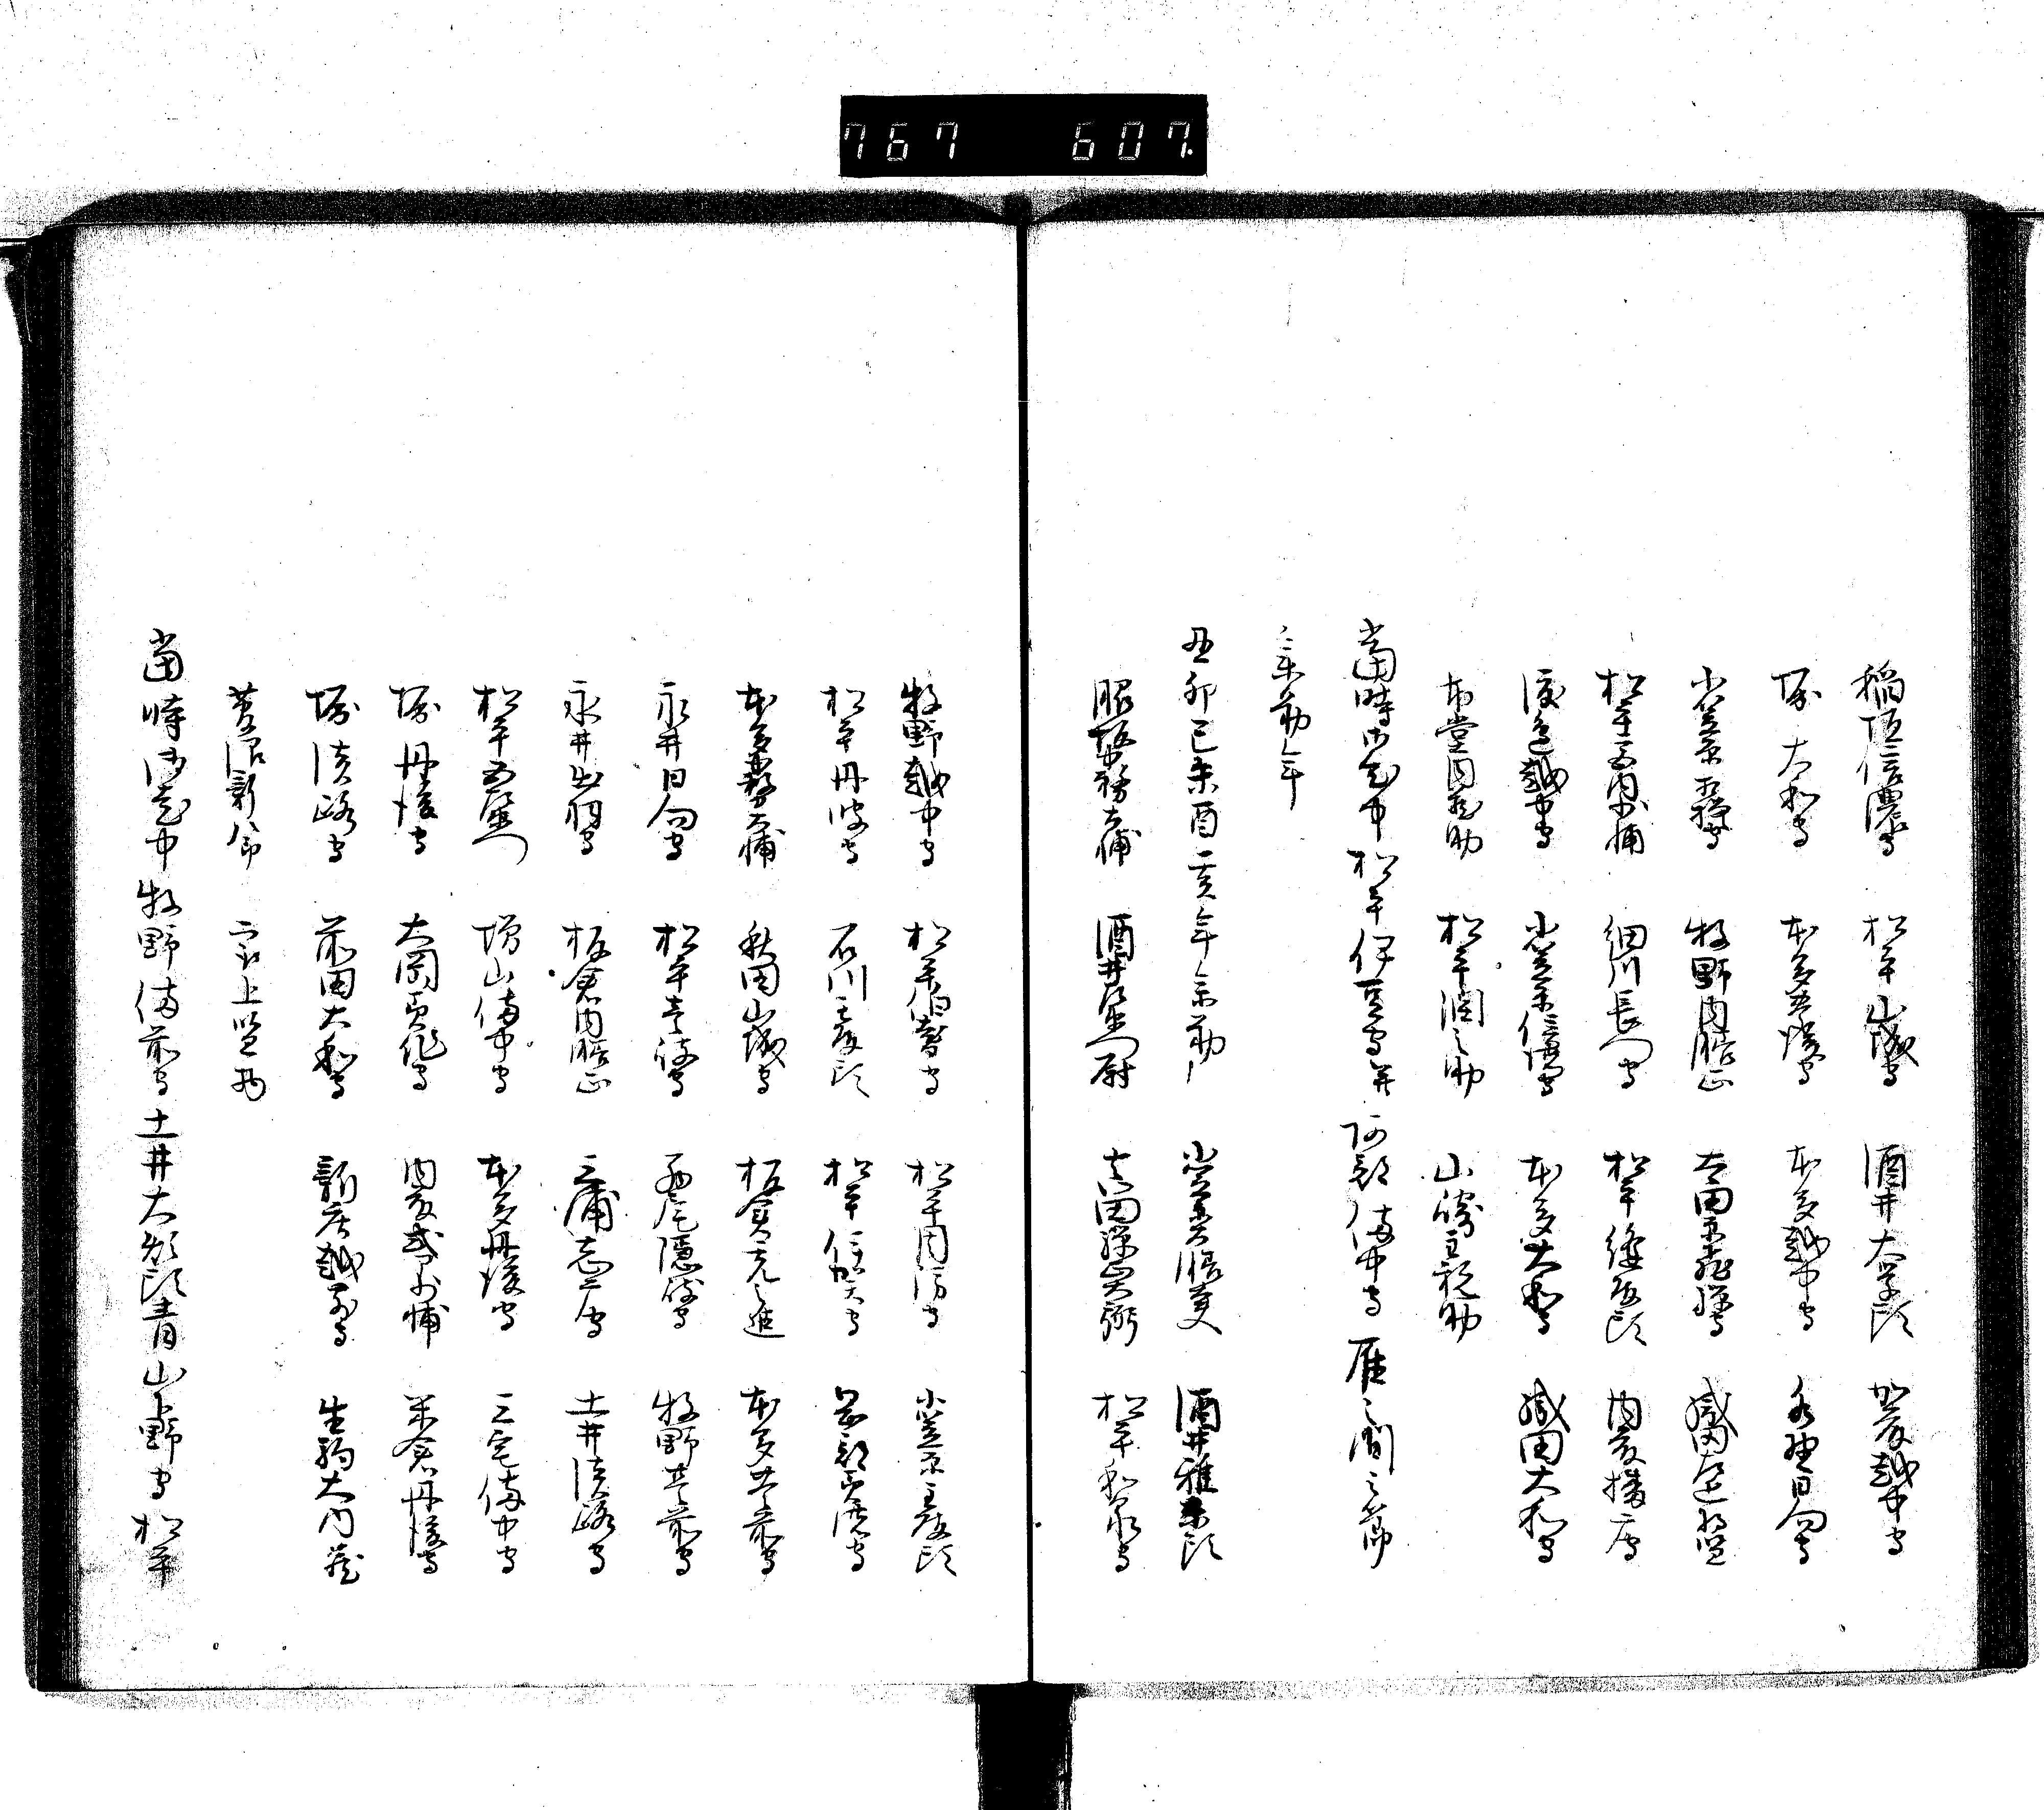 767 607
稲垣信濃守 松平山城守 酒井大学頭 加藤越中守
堀大和守 本多豊後守 本多越中守 永井日向守
小笠原 牧野内膳正 太田原飛騨守 織田近将監
松平宮内少輔 細川長門守 松平縫殿頭 内藤播磨守
渡邊越中守 小笠原信濃守 本多大和守 織田大和守
本堂内蔵助 松平潤之助 山崎主税助
當時御老中松平伊豆守并阿部備中守雁之間之節
参勤之年
丑卯巳未酉亥年参勤 小笠原大膳大夫 酒井雅楽頭
脇坂中務大輔 酒井左衛門尉 真田弾正大弼 松平和泉守
牧野越中守 松平伯耆守 松平周防守 小笠原主殿頭
松平丹波守 石川主殿頭 松平伊賀守 岡部美濃守
本多中務大輔 秋田山城守 板倉 本多豊前守
永井日向守 松平壱岐守 西尾隠岐守 牧野豊前守
永井出羽守 板倉内膳正 三浦志摩守 土井淡路守
松平左兵衛 増山備中守 本多丹後守 三宅備中守
堀丹後守 大岡美作守 内藤式部少輔 米倉丹後守
堀淡路守 前田大和守 新庄越前守 生駒大内蔵
菅沼新八郎 最上監物
當時御老中牧野備前守土井大炊頭青山下野守松平